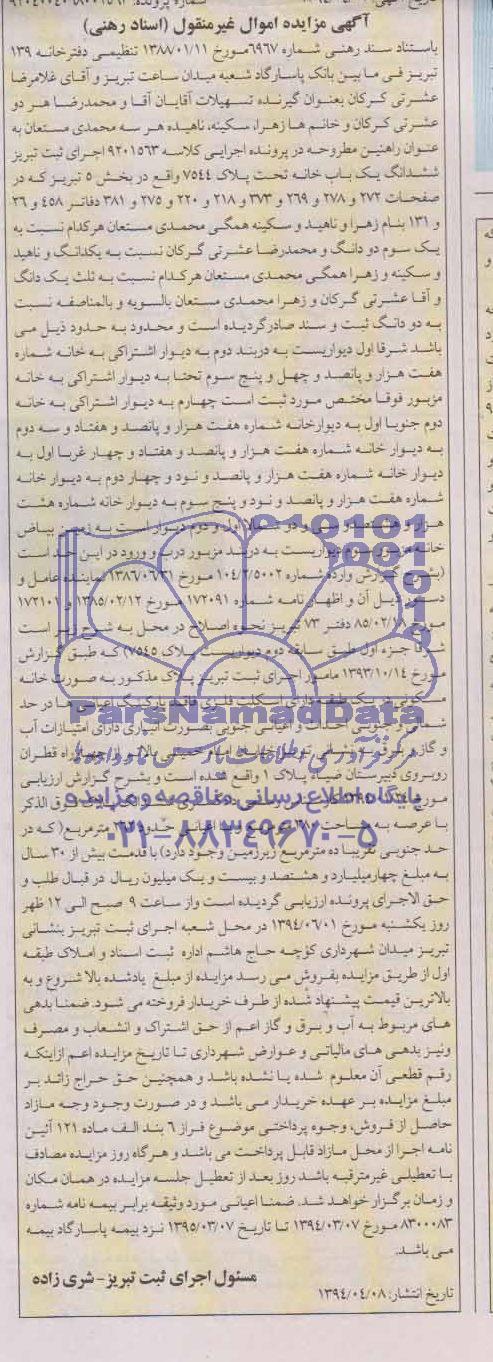 آگهی مزایده اموال غیرمنقول (اسناد رهنی)
باستناد سند رهنی شماره ۶۹۶۷مورخ ۱۳۸۸/۰۱/۱۱ تنظیمی دفترخانه ۱۳۹
تبریز فی ما بین بانک پاسارگاد شعبه میدان ساعت تبریز و آقای غلامرضا
عشرتی کرکان بعنوان گیرنده تسهیلات آقایان آقا و محمدرضا هر دو
عشرتی کرکان و خانم ها زهرا، سکینه، ناهیده هر سه محمدی مستعان به
عنوان راهنین مطروحه در پرونده اجرایی کلاسه ۹۲۰۱۵۶۳ اجرای ثبت تبریز
ششدانگ یک باب خانه تحت پلاک ۷۵۴۴ واقع در بخش ۵ تبریز که در
صفحات ۲۷۲ و ۲۷۸ و ۲۶۹ و ۳۷۳ و ۲۱۸ و ۲۲۰ و ۲۷۵ و ۳۸۱ دفاتر ۴۵۸ و ۲۶
و ۱۳۱ بنام زهرا و ناهید و سکینه همگی محمدی مستعان هرکدام نسبت به
یک سوم دو دانگ و محمدرضا عشرتی گرکان نسبت به یکدانگ و ناهید
و سکینه و زهرا همگی محمدی مستعان هرکدام نسبت به ثلث یک دانگ
و آقا عشرتی گرکان و زهرا محمدی مستعان بالسویه و بالمناصفه نسبت
به دو دانگ ثبت و سند صادرگردیده است و محدود به حدود ذیل می
باشد شرقا اول دیواریست به دربند دوم به دیوار اشتراکی به خانه شماره
هفت هزار و پانصد و چهل و پنج سوم تحتا به دیوار اشتراکی به خانه
مزبور فوقا مختص مورد ثبت است چهارم به دیوار اشتراکی به خانه
دوم جنوبا اول به دیوارخانه شماره هفت هزار و پانصد و هفتاد و سه دوم
به دیوار خانه شماره هفت هزار و پانصد و هفتاد و چهار غربا اول به
دیوار خانه شماره هفت هزار و پانصد و نود و چهار دوم به دیوار خانه
شماره هفت هزار و پانصد و نود و پنج سوم به دیوار خانه شماره هشت
هزار و هشتصد و سی و دو شمالا اول و دوم دیوار است به زمین بیاض
خانه مزبور سوم دیواریست به دربند مزبور درب و ورود در این حد است
(بشرح گزارش وارده شماره ۱۰۴/۲/۵۰۰۲ مورخ ۱۳۸۶/۰۶/۳۱ نماینده عامل و
دستور ذیل آن و اظهارنامه شماره ۱۷۲۰۹۱ مورخ ۱۳۸۵/۰۲/۱۲ و ۱۷۲۱۰۱
مورخ ۸۵/۰۲/۱۸ دفتر ۷۳ تبریز نحوه اصلاح در محل به شرح زیر است
شرقا جزء اول طبق سابقه دوم دیواریست پلاک ۷۵۴۵) که طبق گزارش
مورخ ۱۳۹۳/۱۰/۱۴ مامور اجرای ثبت تبریز پلاک مذکور به صورت خانه
مسکونی در یک طبقه دارای اسکلت فلزی فاقد پارکینگ اعیانی ها در حد
شمالی و جنوبی احداث و اعیانی جنوبی بصورت انباری دارای امتیازات آب
و گاز و برق به نشانی تبریز خیابان امام خمینی بالاتر از چهارراه قطران
روبروی دبیرستان ضیاء پلاک ۱ واقع شده است و بشرح گزارش ارزیابی
حد جنوبی تقریبا ده مترمربع زیرزمین وجود دارد) با قدمت بیش از ۳۰ سال
به مبلغ چهارمیلیارد و هشتصد و بیست و یک میلیون ریال در قبال طلب و
حق الاجرای پرونده ارزیابی گردیده است واز ساعت ۹ صبح الی ۱۲ ظهر
روز یکشنبه مورخ ۱۳۹۴/۰۶/۰۱ در محل شعبه اجرای ثبت تبریز بنشانی
تبریز میدان شهرداری کوچه حاج هاشم اداره ثبت اسناد و املاک طبقه
اول از طریق مزایده بفروش می رسد مزایده از مبلغ یادشده بالا شروع و به
بالاترین قیمت پیشنهاد شده از طرف خریدار فروخته می شود. ضمنا بدهی
های مربوط به آب و برق و گاز اعم از حق اشتراک و انشعاب و مصرف
ونیز بدهی های مالیاتی و عوارض شهرداری تا تاریخ مزایده اعم ازاینکه
رقم قطعی آن معلوم شده یا نشده باشد و همچنین حق حراج زائد بر
مبلغ مزایده بر عهده خریدار می باشد و در صورت وجود وجه مازاد
حاصل از فروش، وجوه پرداختی موضوع فراز ۶ بند الف ماده ۱۲۱ آئین
نامه اجرا از محل مازاد قابل پرداخت می باشد و هرگاه روز مزایده مصادف
با تعطیلی غیرمترقبه باشد روز بعد از تعطیل جلسه مزایده در همان مکان
و زمان برگزار خواهد شد. ضمنا اعیانی مورد وثیقه برابر بیمه نامه شماره
۸۳۰۰۰۸۳ مورخ ۱۳۹۴/۰۳/۰۷ تا تاریخ ۱۳۹۵/۰۳/۰۷ نزد بیمه پاسارگاد بیمه
می باشد.
مسئول اجرای ثبت تبریز- شری زاده
تاریخ انتشار: ۱۳۹۴/۰۴/۰۸
ParsNamadData
پایگاه اطلاع رسانی مناقصه و مزایده
۰۲۱-۸۸۳۴۹۶۷۰-۵